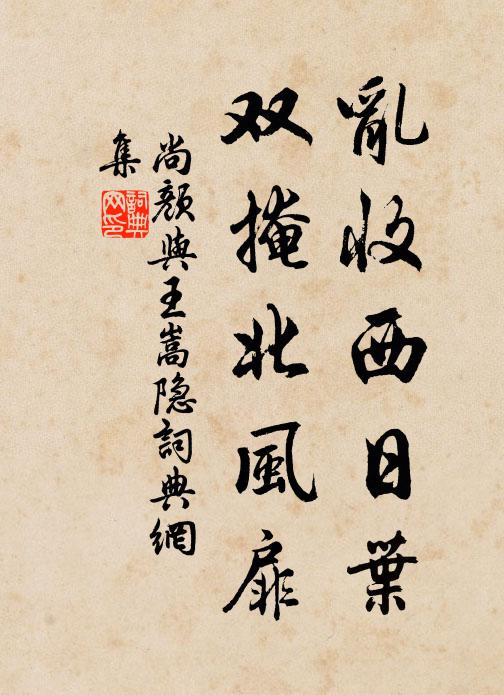 亂收西日葉
双掩北風扉
尚顏與王嵩隐詞典網
集
詞典
网印